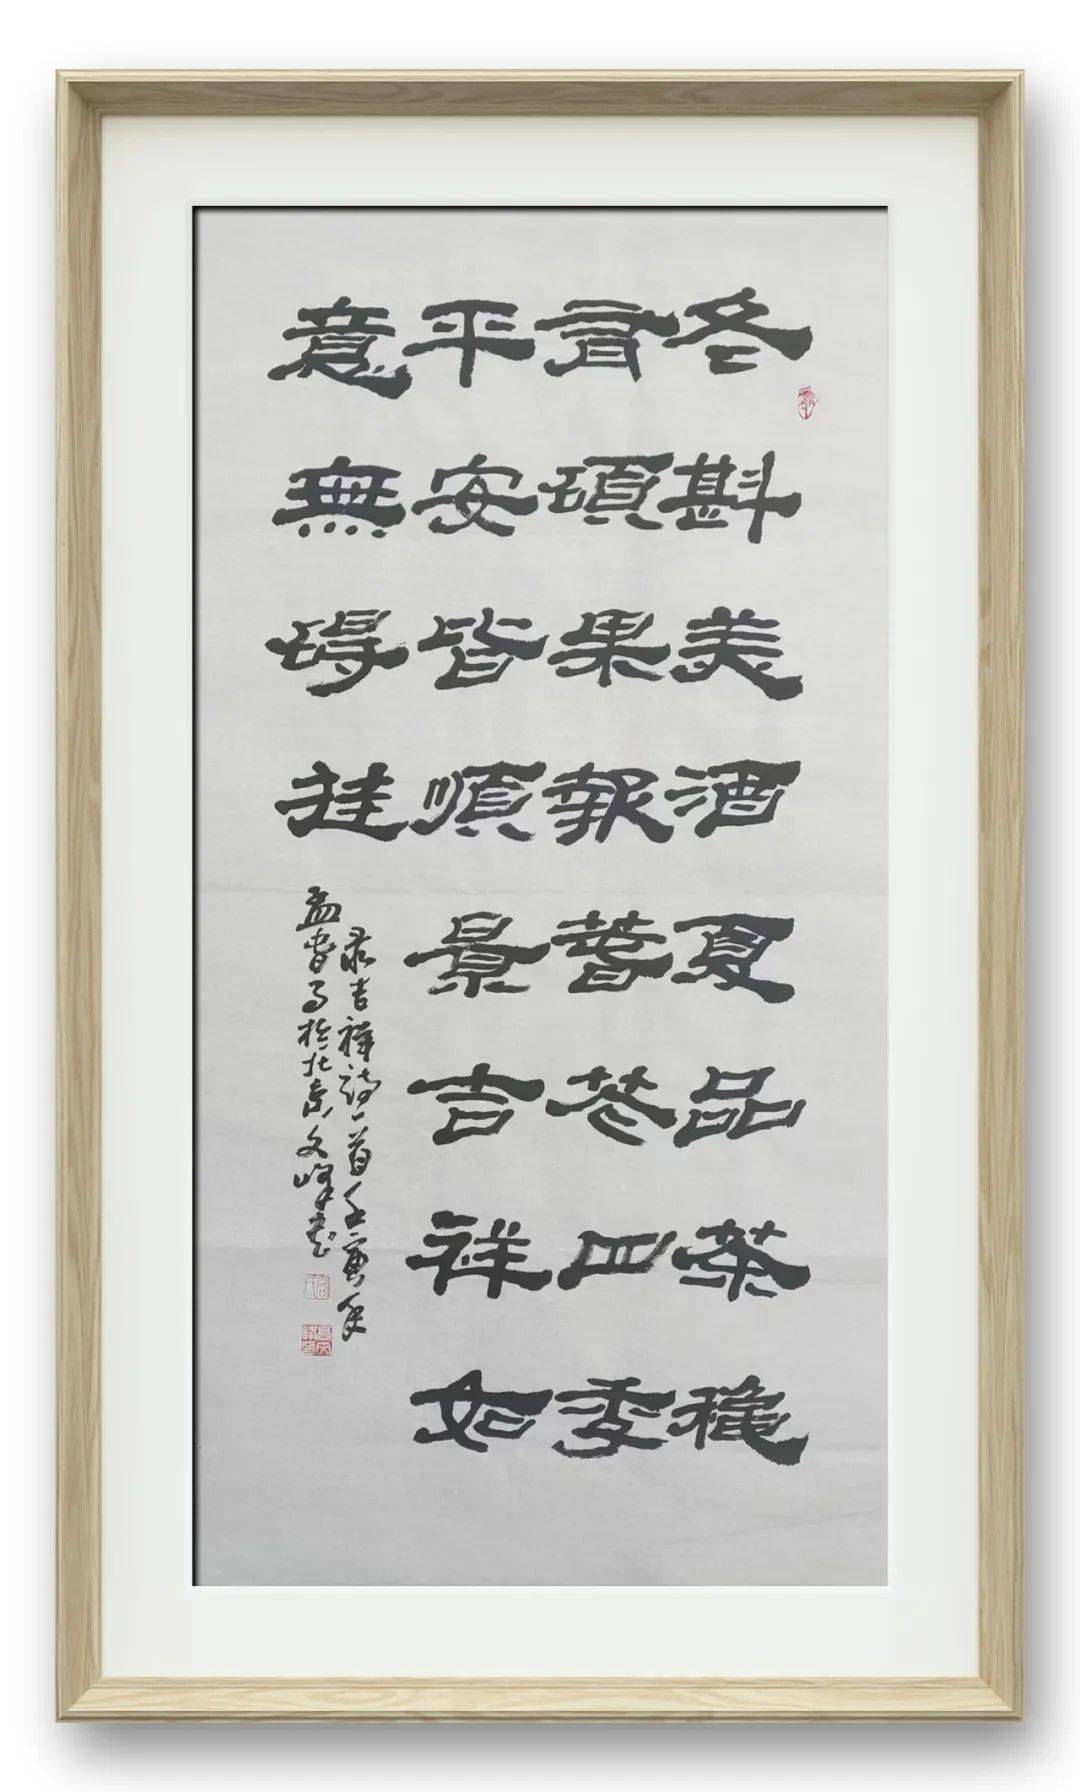 冬斟美酒夏品茶穐
有碩果報萅花四季
平安皆順景吉祥如
意無碍挂
录吉祥詩一首壬寅年
孟春写於北京文峰書